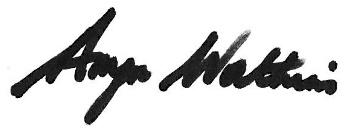 Anya Watkins